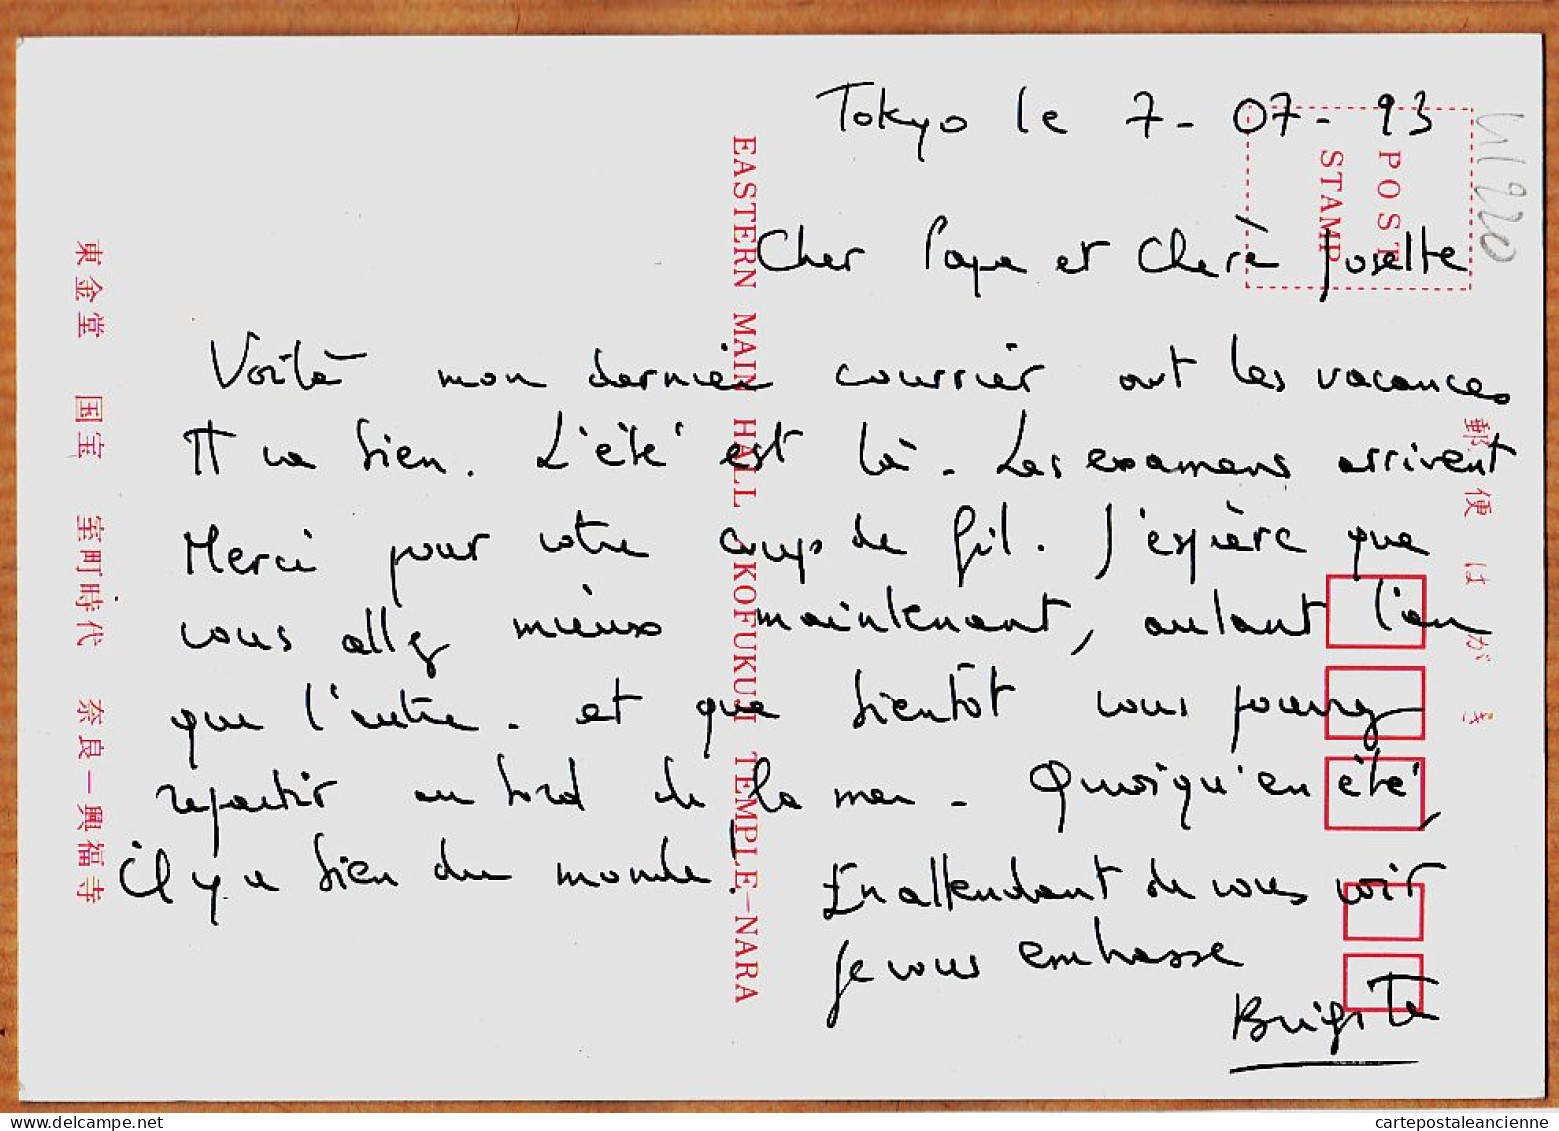 Tokyo le 7-07-93
Cher Papa et Chère Josette
Voilà mon dernier courrier avt les vacances
Tt va bien. L'été est là. Les examens arrivent
Merci pour votre coup de fil. J'espère que
vous allez mieux maintenant, autant l'un
que l'autre. et que bientôt vous pourrez
repartir au bord de la mer. Quoiqu'en été,
il y a bien du monde!
En attendant de vous voir
je vous embrasse
Brigitte
POST
STAMP
EASTERN MAIN HALL KOFUKUJI TEMPLE-NARA
郵便はがき
東金堂 国宝 室町時代 奈良一興福寺
cartepostaleancienne